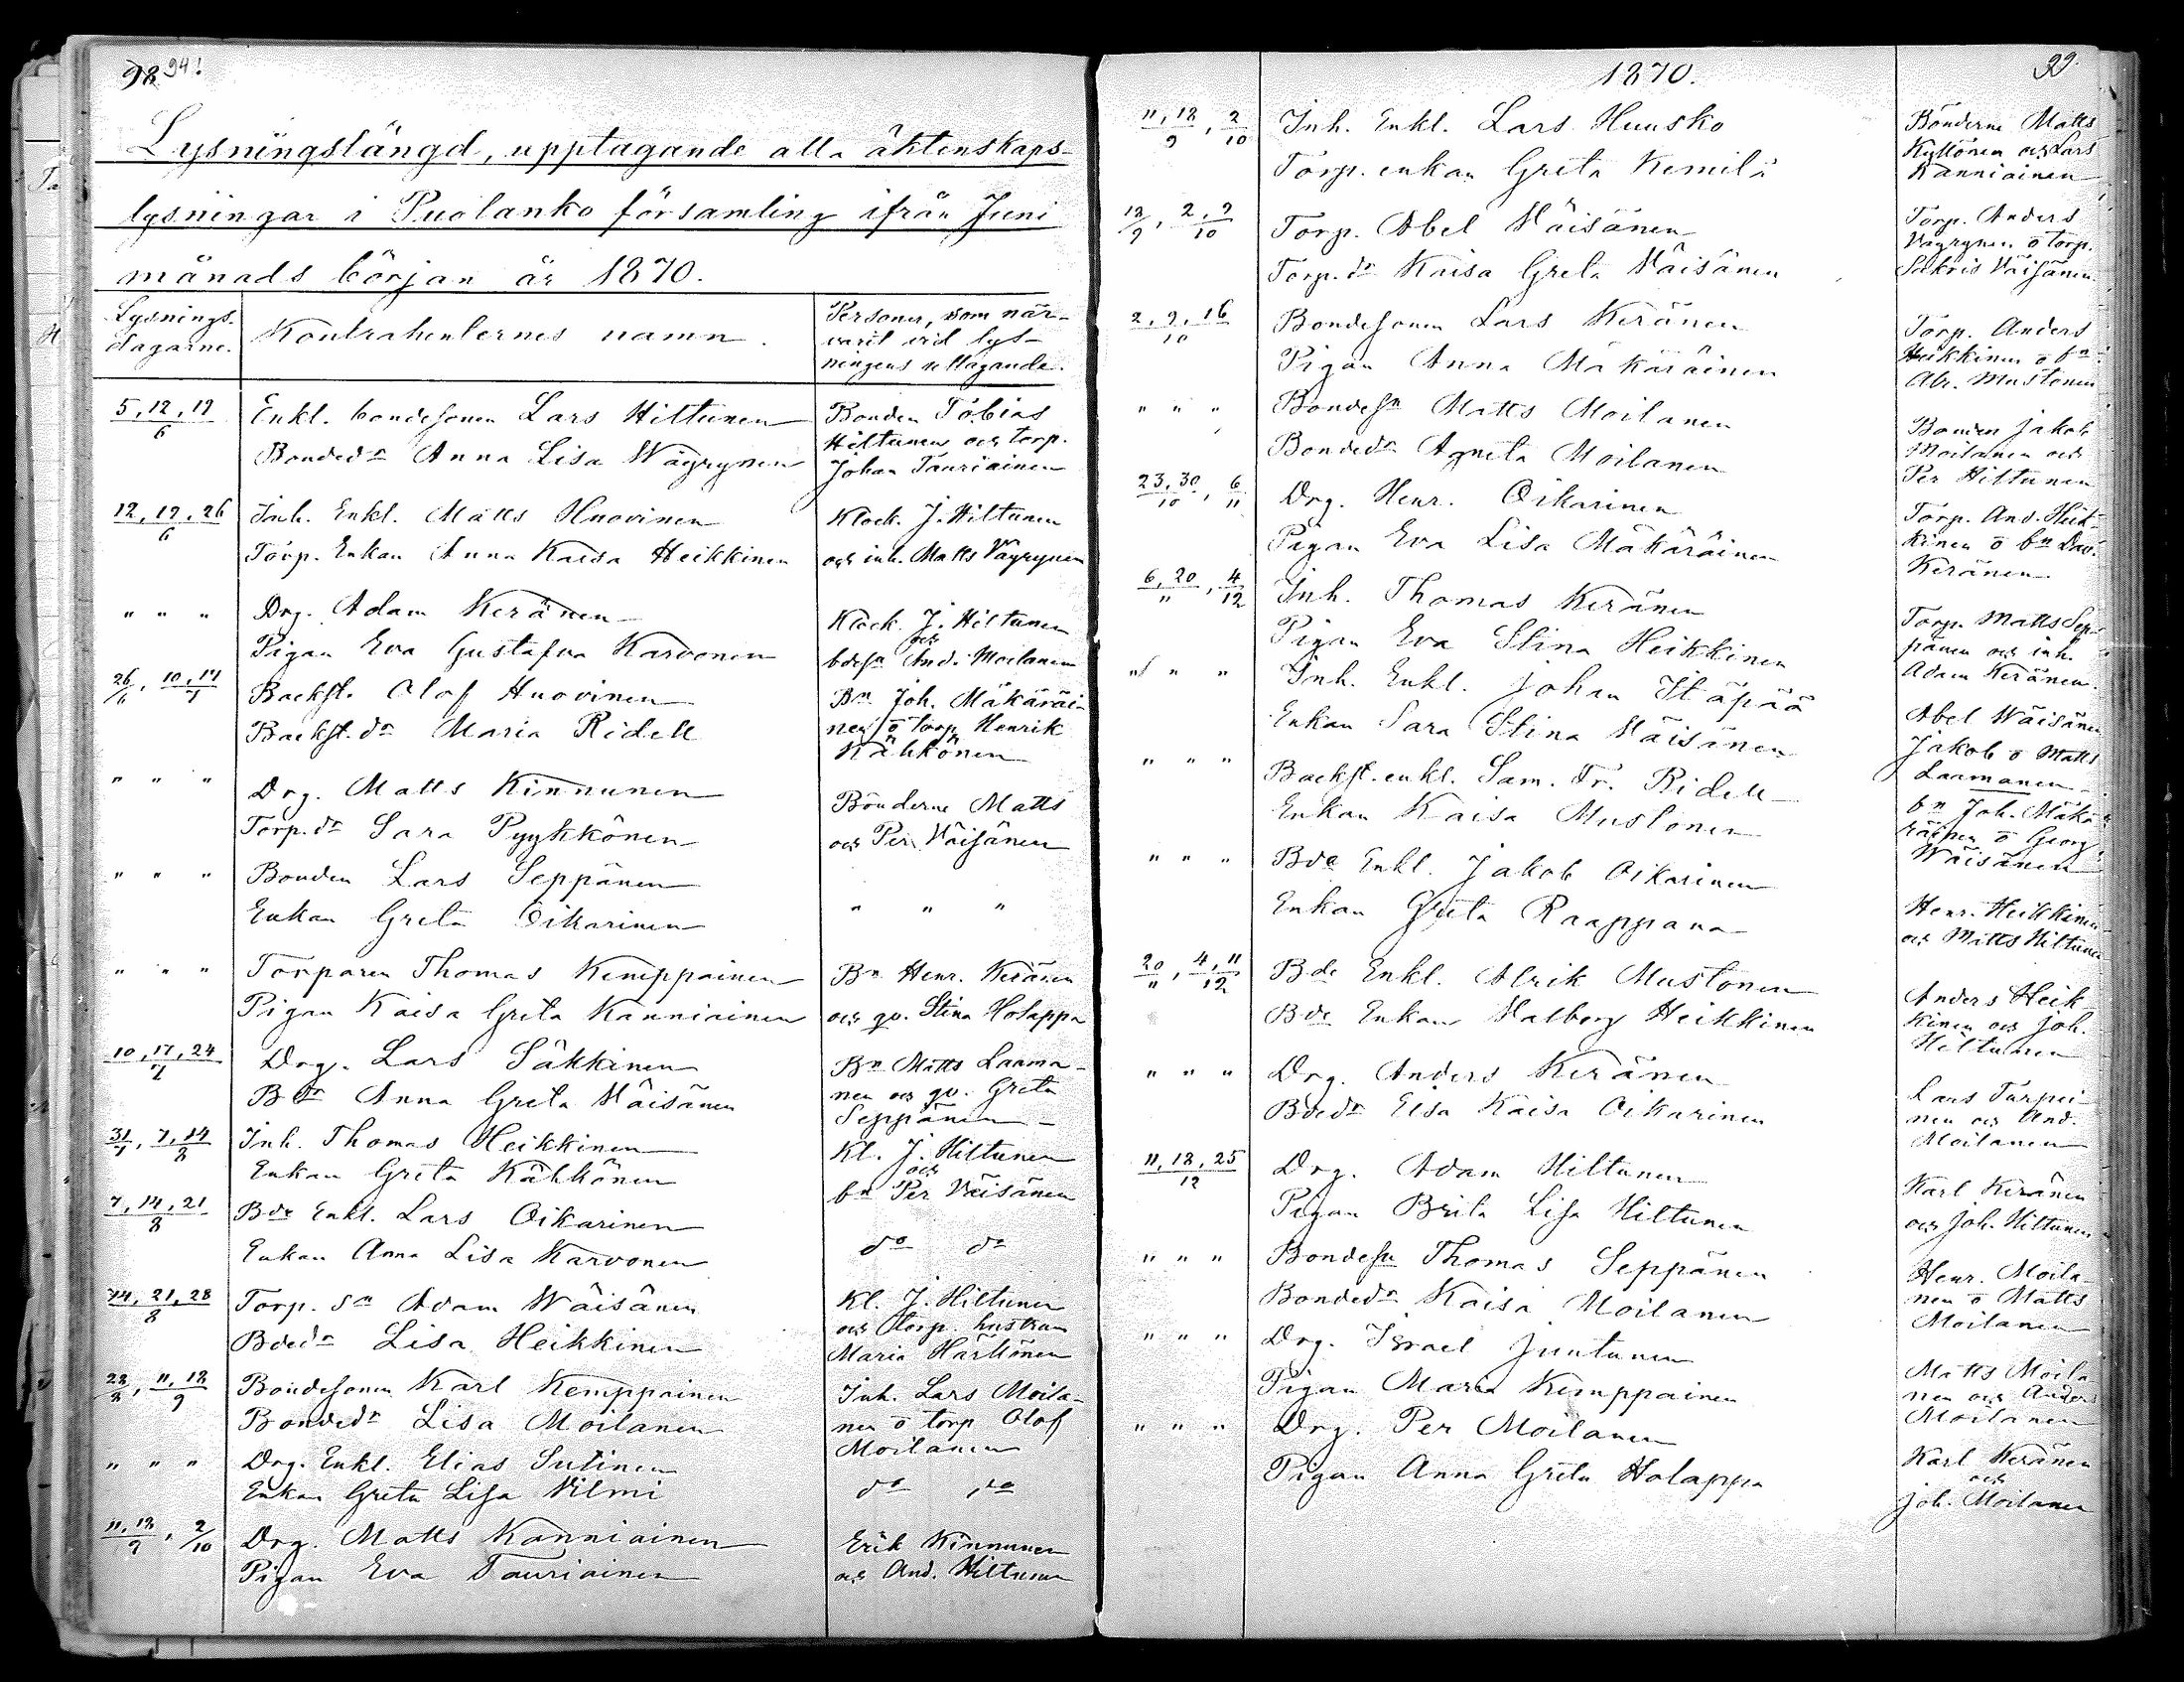 98 94!
Lysningslängd, upptagande alla äktenskaps-
lysningar i Puolanko församling ifrån Juni
månads början år 1870.
Lysnings-
dagarne.
Kontrahenternes namn.
Personer, som när-
varit vid lys-
ningens uttagande.
5, 12, 19/6
Enkl. bondesonen Lars Hiltunen
Bonded:r Anna Lisa Wäyrynen
Bonden Tobias
Hiltunen och torp.
Johan Tauriainen
12, 19, 26/6
Inh. Enkl. Matts Huovinen
Torp. Enkan Anna Kaisa Heikkinen
Klock. J. Hiltunen
och inh. Matts Väyrynen
" " "
Drg. Adam Keränen
Pigan Eva Gustafva Karvonen
Klock. J. Hiltunen
och
bdesn And. Moilanen
26/6, 10, 17/7
Backst. Olof Huovinen
Backst. dr Maria Ridell
Bn Joh. Mäkäräi-
nen o torp. Henrik
Kähkönen
" " "
Drg. Matts Kinnunen
Torp. dr Sara Pyykkönen
Bönderne Matts
och Per Väisänen
" " "
Bonden Lars Seppänen
Enkan Greta Oikarinen
" " "
" " "
Torparen Thomas Kemppainen
Pigan Kaisa Greta Kanniainen
Bn Henr. Keränen
och qv. Stina Holappa
10, 17, 24/7
Drg. Lars Säkkinen
Bdr Anna Greta Väisänen
Bn Matts Laama-
nen och qv. Greta
Seppänen
31/7, 7, 14/8
Inh. Thomas Heikkinen
Enkan Greta Kähkönen
Kl. J. Hiltunen
och
bn Per Väisänen
7, 14, 21/8
Bde Enkl. Lars Oikarinen
Enkan Anna Lisa Karvonen
do do
14, 21, 28/8
Torp. sn Adam Wäisänen
Bdedr Lisa Heikkinen
Kl. J. Hiltunen
och torp. hustrun
Maria Härkönen
28/8, 11, 18/9
Bondesonen Karl Kemppainen
Bondedr Lisa Moilanen
Inh. Lars Moila-
nen o torp Olof
Moilanen
" " "
Drg. Enkl. Elias Sutinen
Enkan Greta Lisa Vilmi
do do
11, 18/9, 2/10
Drg. Matts Kanniainen
Pigan Eva Tauriainen
Erik Kinnunen
och And. Hiltunen
1870.
99.
11, 18/9, 2/10
Inh. Enkl. Lars Huusko
Torp. enkan Greta Kemilä
Bönderne Matts
Kyllönen och Lars
Kanniainen
18/9, 2, 9/10
Torp. Abel Väisänen
Torp. dr Kaisa Greta Väisänen
Torp. Anders
Väyrynen o torp.
Sakris Väisänen
2, 9, 16/10
Bondesonen Lars Keränen
Pigan Anna Mäkäräinen
Torp. Anders
Heikkinen o bn
Abr. Mustonen
" " "
Bondesn Matts Moilanen
Bondedr Agneta Moilanen
Bonden Jakob
Moilanen och
Per Hiltunen
23, 30/10, 6/11
Drg. Henr. Oikarinen
Pigan Eva Lisa Mäkäräinen
Torp. And. Heik-
kinen o bn Dav.
Keränen
6, 20/11, 4/12
Inh. Thomas Keränen
Pigan Eva Stina Heikkinen
Torp. Matts Sep-
pänen och inh.
Adam Keränen.
" " "
Inh. Enkl. Johan Itäpää
Enkan Sara Stina Väisänen
Abel Wäisänen
Jakob o Matts
Laamanen
" " "
Backst. enkl. Sam. Fr. Ridell
Enkan Kaisa Mustonen
bn Joh. Mäkä-
räinen o Georg
Wäisänen
" " "
Bde Enkl. Jakob Oikarinen
Enkan Greta Raappana
Henr. Heikkinen
och Matts Hiltunen
20/11, 4, 11/12
Bde Enkl. Alrik Mustonen
Bde Enkan Valborg Heikkinen
Anders Heik-
kinen och Joh.
Hiltunen
" " "
Drg. Anders Keränen
Bdedr Elsa Kaisa Oikarinen
Lars Turpei-
nen och And.
Moilanen
11, 18, 25/12
Drg. Adam Hiltunen
Pigan Brita Lisa Hiltunen
Karl Keränen
och Joh. Hiltunen
" " "
Bondesn Thomas Seppänen
Bondedr Kaisa Moilanen
Henr. Moila-
nen o Matts
Moilanen
" " "
Drg. Israel Juntunen
Pigan Maria Kemppainen
Matts Moila
nen och Anders
Moilanen
" " "
Drg. Per Moilanen
Pigan Anna Greta Holappa
Karl Keränen
och
Joh. Moilanen